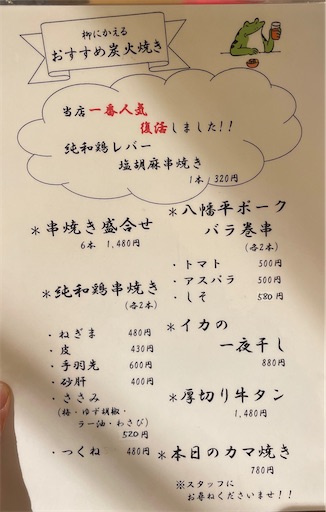 柳にかえる
おすすめ炭火焼き
当店一番人気
復活しました!!
純和鶏レバー
塩胡麻串焼き
1本 320円
＊串焼き盛合せ
6本 1,480円
＊純和鶏串焼き
(各2本)
・ねぎま 480円
・皮 430円
・手羽先 600円
・砂肝 400円
・ささみ
(梅・ゆず胡椒・
ラー油・わさび)
520円
・つくね 480円
＊八幡平ポーク
バラ巻串
(各2本)
・トマト 500円
・アスパラ 500円
・しそ 580円
＊イカの
一夜干し
880円
＊厚切り牛タン
1,480円
＊本日のカマ焼き
780円
※スタッフに
お尋ねくださいませ!!